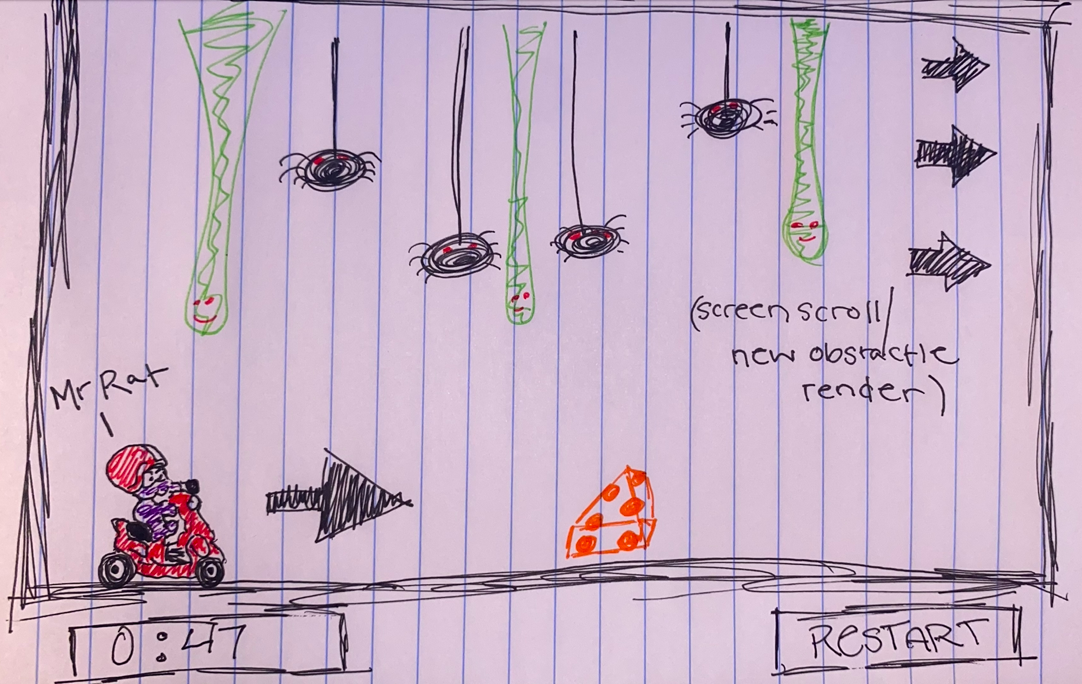 (screen scroll/
new obstactle
render)
Mr Rat
0:47
RESTART